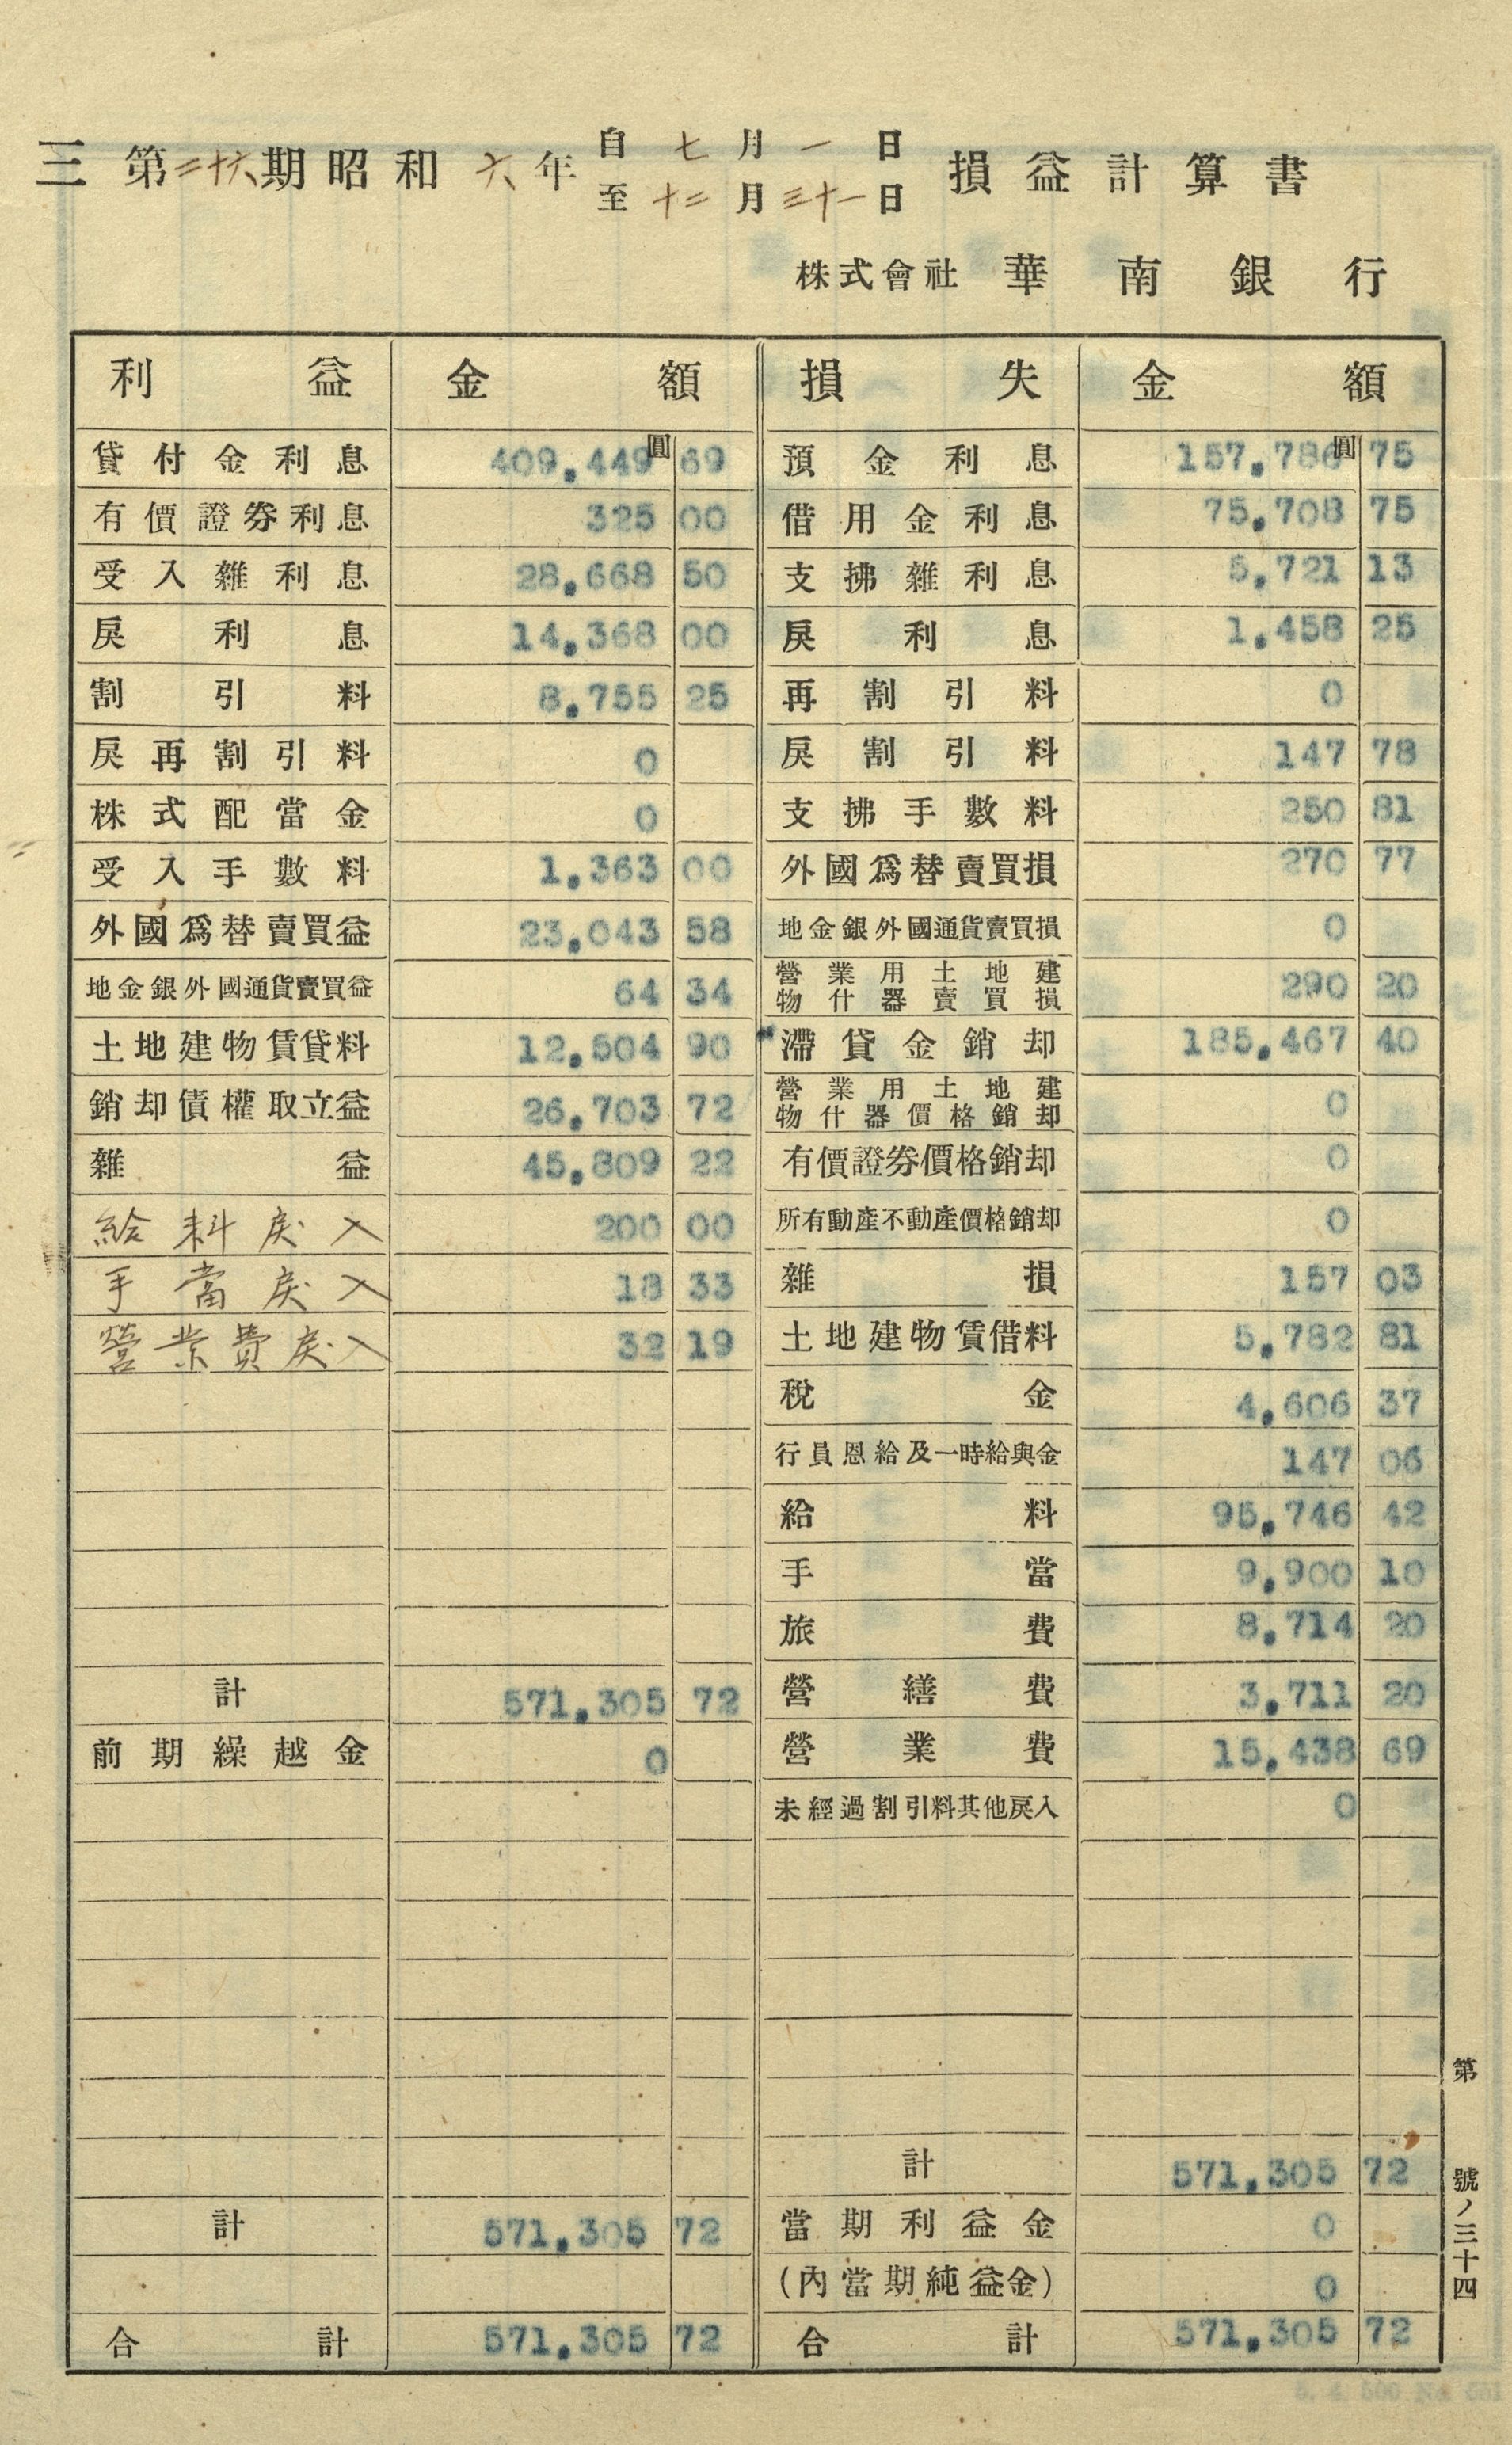 三 第二十六期昭和六年 自七月一日 至十二月三十一日 損益計算書
株式會社 華南銀行
利益 金額 損失 金額
貸付金利息 409,449圓 69 預金利息 157,786圓 75
有價證券利息 325 00 借用金利息 75,708 75
受入雜利息 28,668 50 支拂雜利息 5,721 13
戾利息 14,368 00 戾利息 1,458 25
割引料 8,755 25 再割引料 0
戾再割引料 0 戾割引料 147 78
株式配當金 0 支拂手數料 250 81
受入手數料 1,363 00 外國爲替賣買損 270 77
外國爲替賣買益 23,043 58 地金銀外國通貨賣買損 0
地金銀外國通貨賣買益 64 34 營業用土地建物什器賣買損 290 20
土地建物賃貸料 12,504 90 滯貸金銷却 185,467 40
銷却債權取立益 26,703 72 營業用土地建物什器價格銷却 0
雜益 45,809 22 有價證券價格銷却 0
給料戾入 200 00 所有動產不動產價格銷却 0
手當戾入 18 33 雜損 157 03
營業費戾入 32 19 土地建物賃借料 5,782 81
稅金 4,606 37
行員恩給及一時給與金 147 06
給料 95,746 42
手當 9,900 10
旅費 8,714 20
計 571,305 72 營繕費 3,711 20
前期繰越金 0 營業費 15,438 69
未經過割引料其他戾入 0
計 571,305 72
計 571,305 72 當期利益金 0
(內當期純益金) 0
合計 571,305 72 合計 571,305 72
第 號ノ三十四